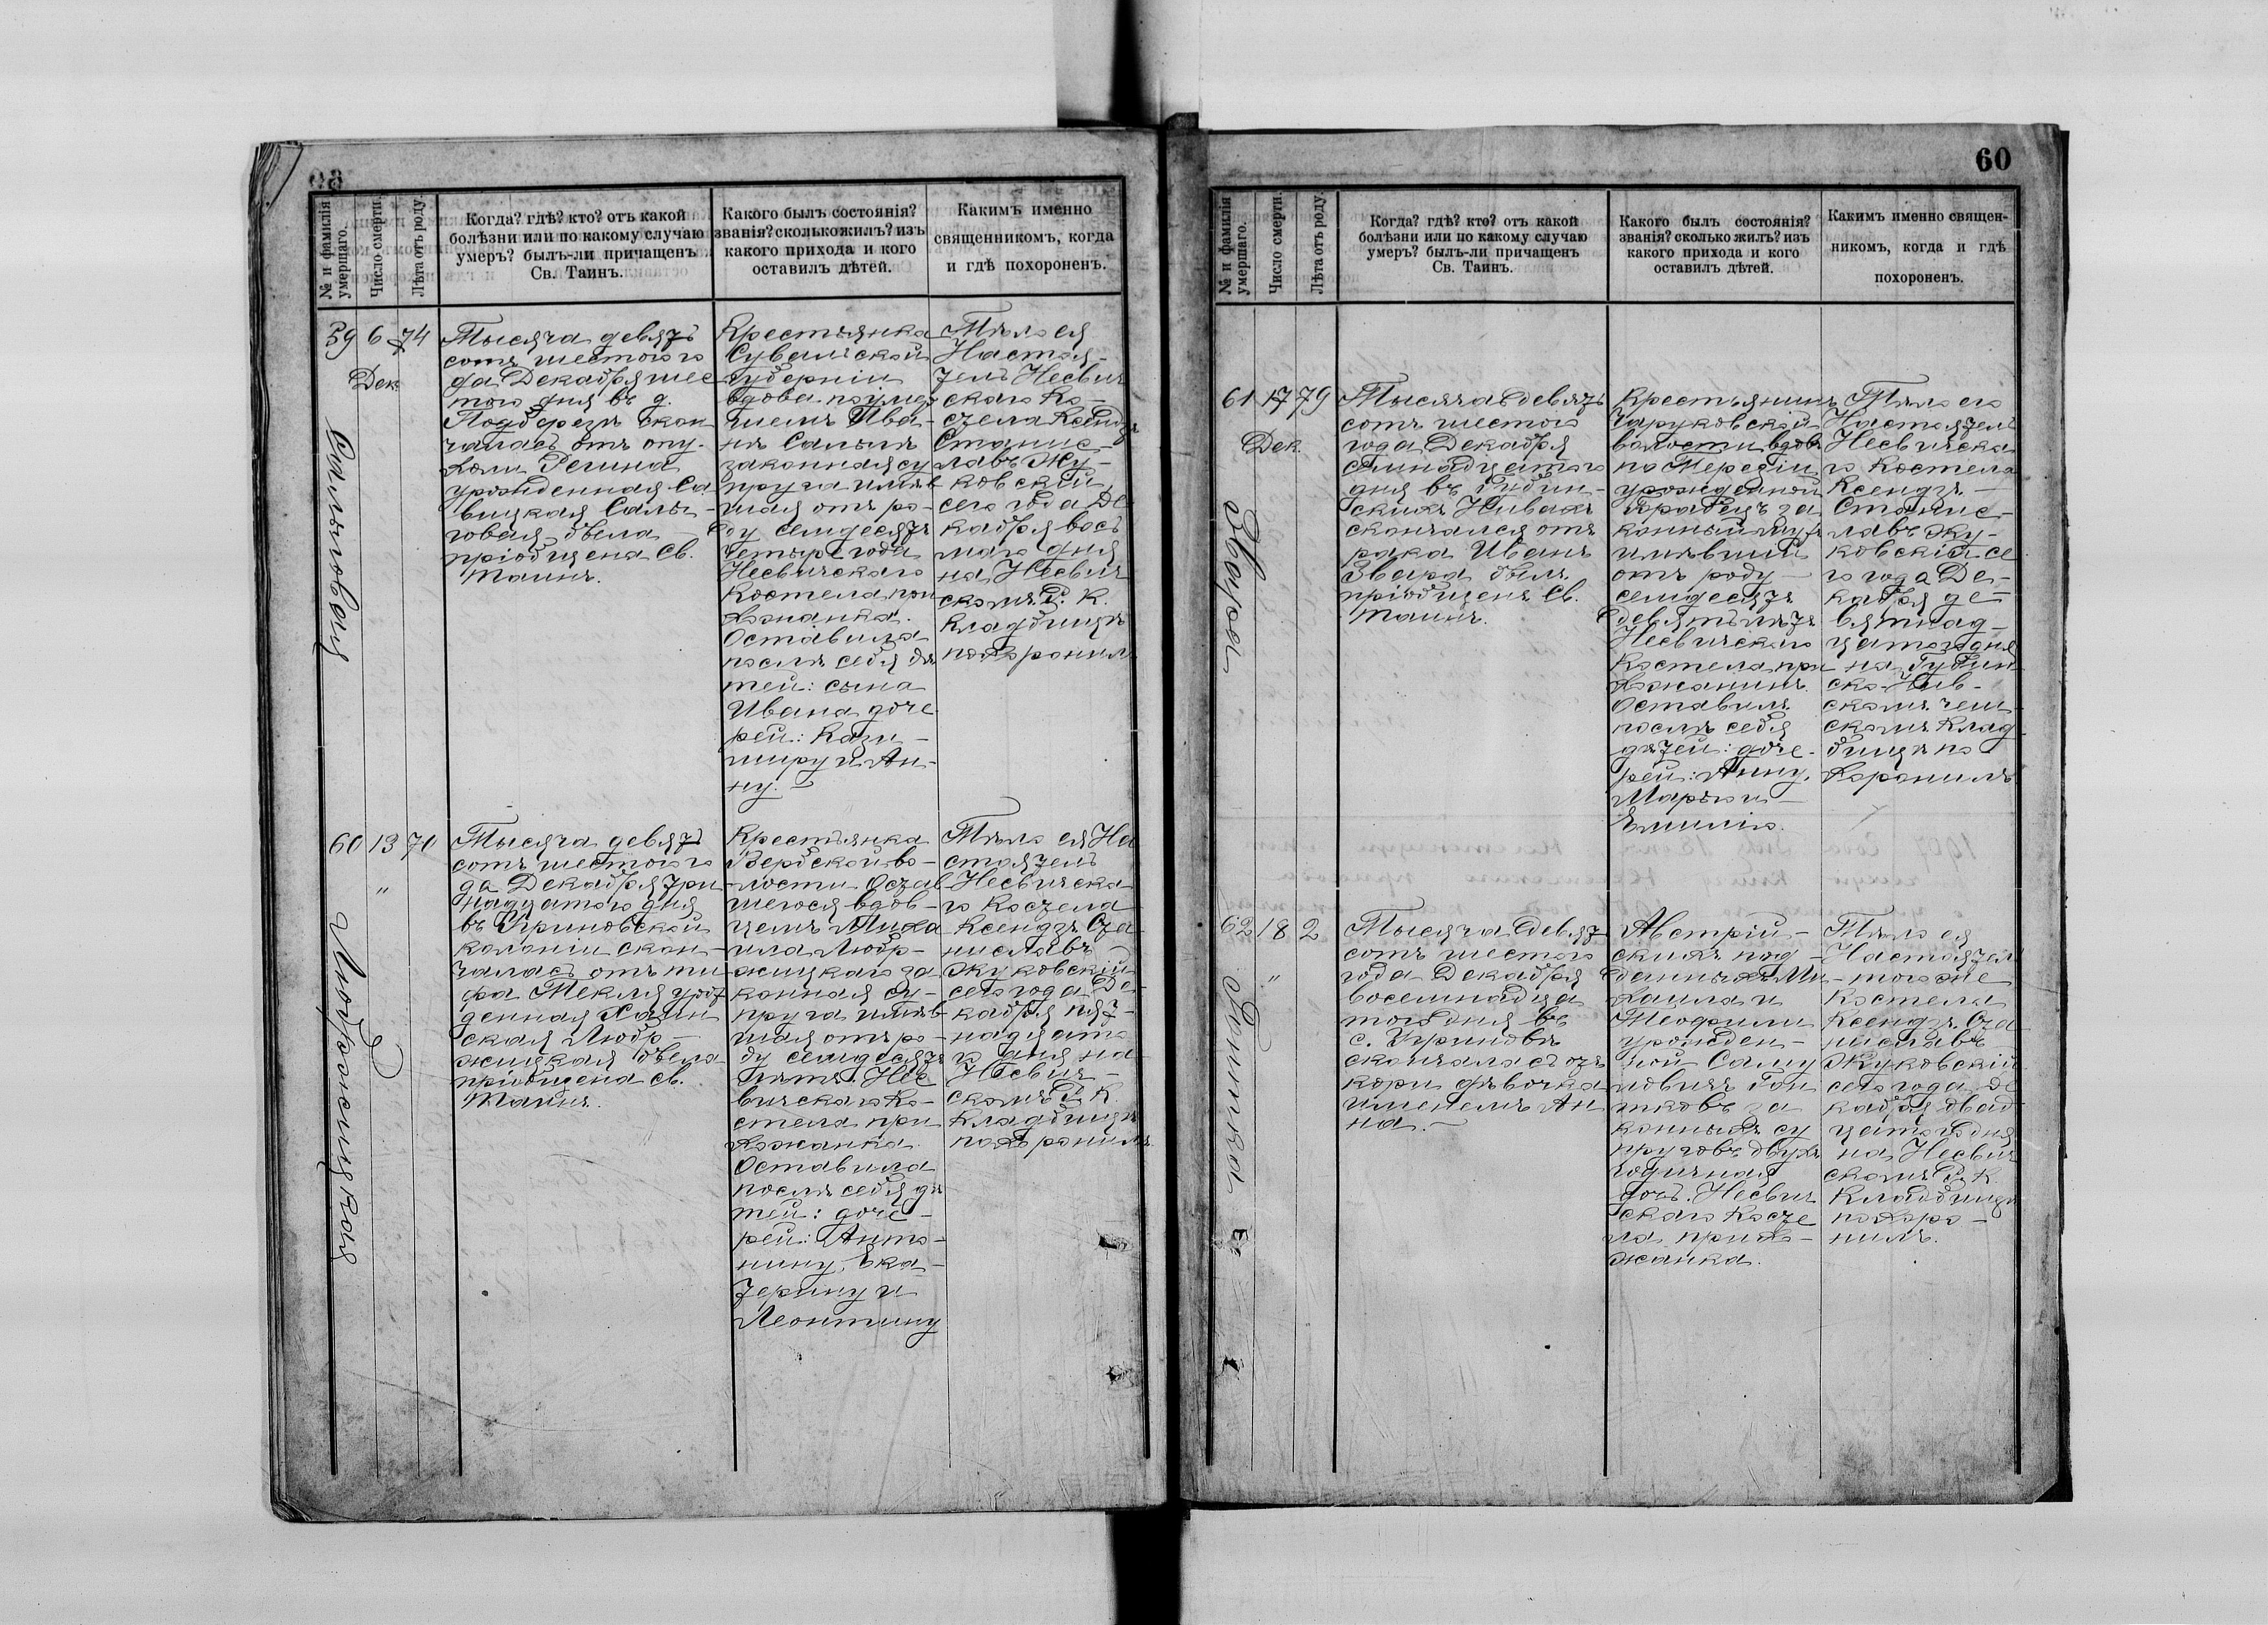 № и фамилія умершаго.
Число смерти.
Лѣта отъ роду.
Когда? гдѣ? кто? отъ какой
болѣзни или по какому случаю
умеръ? былъ-ли причащенъ
Св. Таинъ.
Какого былъ состоянія?
званія? сколько жилъ? изъ
какого прихода и кого
оставилъ дѣтей.
Какимъ именно
священникомъ, когда
и гдѣ похороненъ.
59 6 74
Дек.
Тысяча девять
сотъ шестого го
да Декабря шес
того дня въ д.
скон
чалась отъ опу-
холи Регина
урожденная Са
вицкая
была
пріобщена Св.
Таинъ.
Крестьянка
Сувалкской
губерніи
вдова по умер
шемъ Ива-
нѣ
законная су
пруга имѣв
шая отъ ро-
ду семдесятъ
четыре года
Несвичскаго
Костела при
хожанка.
Оставила
послѣ себя дѣ
тей: сына
Ивана доче
рей: Кази-
миру и Ан-
ну.
Тѣло ея
Настоя-
тель Несвич
скаго Ко-
стела Ксендзъ
Станис-
лавъ Жу-
ковскій
сего года Де
кабря вось
маго дня
на Несвич
скомъ Р. К.
кладбищѣ
похоронилъ
60 13 70
"
Любржицкая
Тысяча девять
сотъ шестого го
да Декабря три
надцатаго дня
въ Угриновской
колоніи скон-
чалась отъ ти
фа Текля урож
денная
ская Любр-
жицкая была
пріобщена Св.
Таинъ.
Крестьянка
во-
лости Остав
шегося вдов-
цемъ Миха
ила Любр-
жицкаго за
конная су-
пруга имѣв-
шая отъ ро-
ду семдесятъ
лѣтъ. Нес
вичскаго Ко-
стела при
хожанка
Оставила
послѣ себя дѣ
тей: доче-
рей: Анто-
нину, Ека-
терину и
Леонтину
Тѣло ея На
стоятель
Несвичска
го Костела
Ксендзъ Ста
ниславъ
Жуковскій
сего года Де-
кабря пят-
надцата
го дня на
Несвич-
скомъ Р. К.
кладбищѣ
похоронилъ
60
№ и фамилія умершаго.
Число смерти.
Лѣта отъ роду.
Когда? гдѣ? кто? отъ какой
болѣзни или по какому случаю
умеръ? былъ-ли причащенъ
Св. Таинъ.
Какого былъ состоянія?
званія? сколько жилъ? изъ
какого прихода и кого
оставилъ дѣтей.
Какимъ именно священ-
никомъ, когда и гдѣ
похороненъ.
61 17 79
Дек.
Звара
Тысяча девять
сотъ шестого
года Декабря
семнадцатаго
дня въ Губин-
скихъ Нивахъ
скончался отъ
рака Иванъ
Звара былъ
пріобщенъ Св.
Таинъ.
Крестьянинъ
Чаруковской
волости вдов.
по
урожденной
за
конный мужъ
имѣвшій
отъ роду
семдесятъ
девять лѣтъ
Несвичскаго
Костела при
хожанинъ.
Оставилъ
послѣ себя
дѣтей: доче-
рей: Анну,
Марію и
Емилію.
Тѣло его
Настоятель
Несвичска
го Костела
Ксендзъ
Станис-
лавъ Жу-
ковскій се
го года Де-
кабря де-
вятнад-
цатаго дня
на Губин
ско-Нив-
скомъ чеш-
скомъ клад
бищѣ по
хоронилъ
62 18 2
"
Тысяча девят
сотъ шестого
года Декабря
восемнадца
того дня въ
с. Угриновѣ
скончалась отъ
кори дѣвочка
именемъ Ан
на.
Австрій-
скихъ под-
данныхъ Ми
хаила и
Теофили
урожден-
ной
за
конныхъ су
пруговъ двухъ
годичная
дочь. Несвич
скаго Косте
ла прихо-
жанка.
Тѣло ея
Настоятел
тогоже
Костела
Ксендзъ Ста
ниславъ
Жуковскій
сего года Де
кабря двад
цатаго дня
на Несвич
скомъ Р. К.
кладбищѣ
похоро-
нилъ.